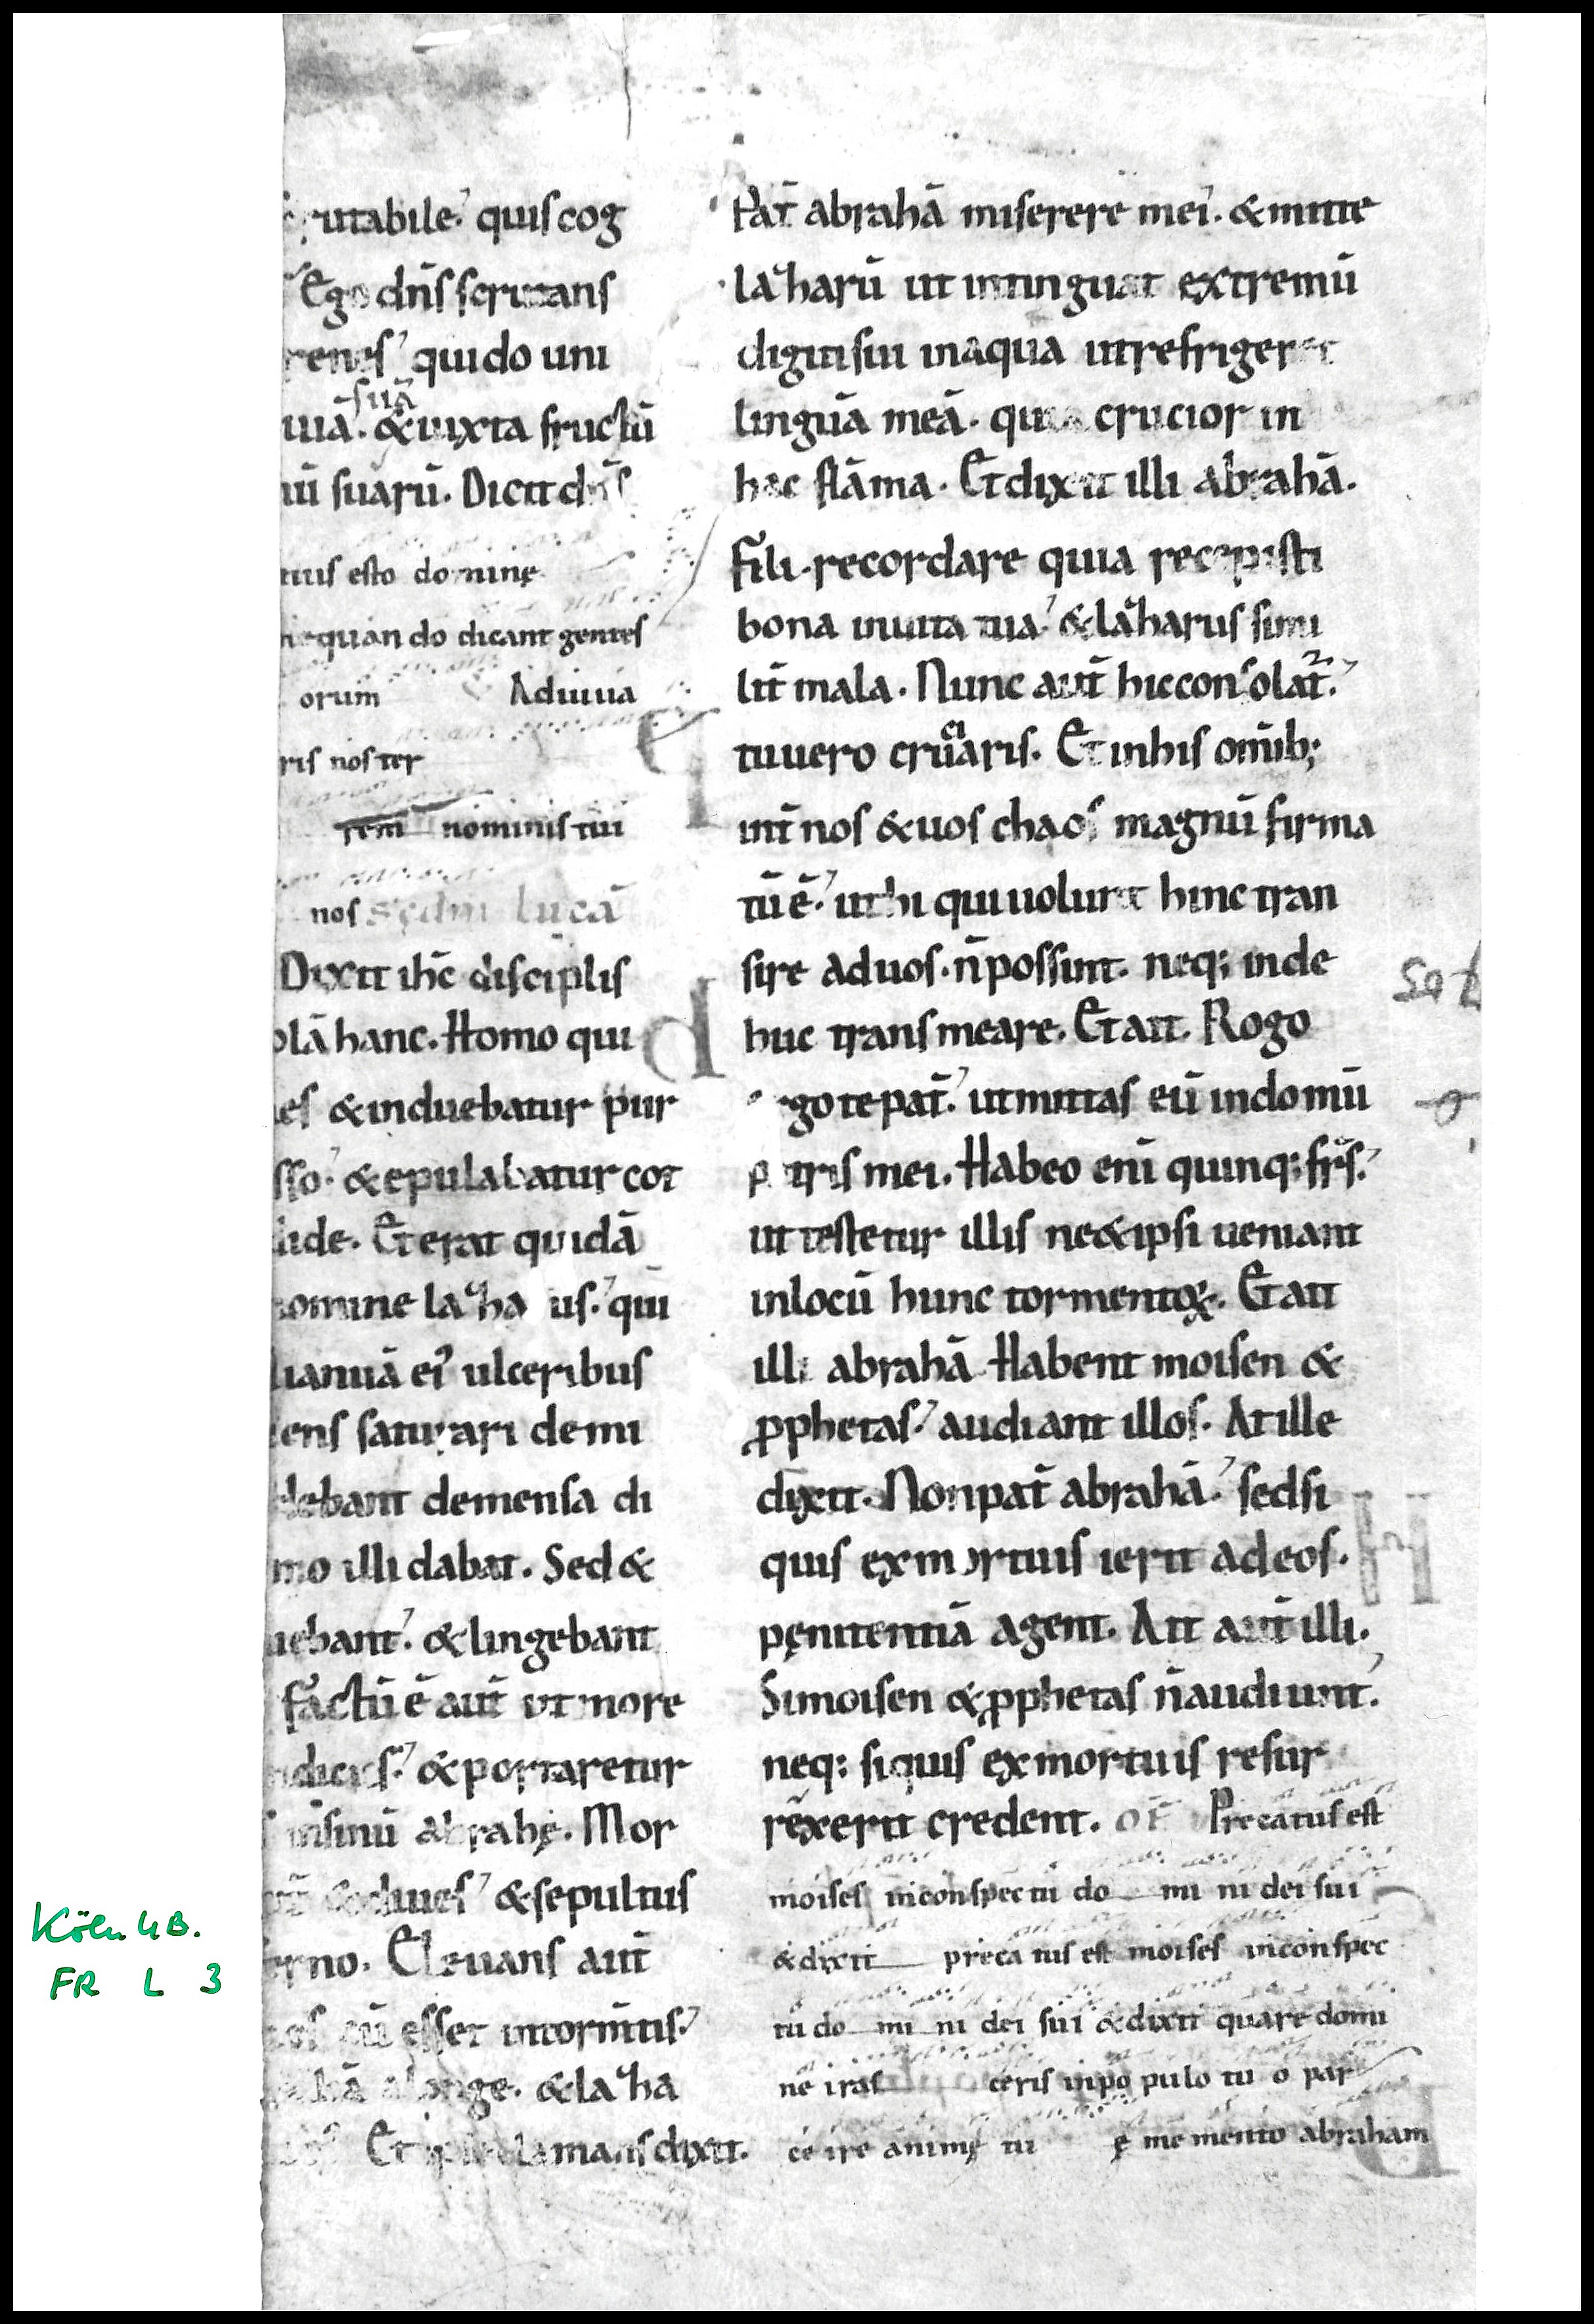 rutabile. quis cog
Ego dn̄s scrutans
renes qui do uni
suā
uiā. & iuxta fructū
nū suarū. Dicit dn̄s
tius esto dominę
nequan do dicant gentes
orum Adiuua
ris nos ter
rem nominis tui
nos Scdm lucā
Dixit ihc̄ discipl̄is
olā hanc. Homo qui
es & induebatur pur
sso. & epulabatur cot
lide. Et erat quidā
nomine lazha us. qui
ianuā ei' ulceribus
iens saturari de mi
debant demensa di
mo illi dabat. Sed &
iebant. & lingebant
factū ē aut̄ ut more
dicus. & portaretur
insinū abrahę. Mor
diues & sepultus
erno. Eleuans aut̄
os cū esset intorm̄tis.
hā alonge. & lazha
Et ipse clamans dixit.
Pat̄ abrahā miserere mei. & mitte
lazharū ut intinguat extremū
digiti sui inaqua utrefrigeret
linguā meā. quia crucior in
hac flāma. Et dixit illi abrahā.
Fili. recordare quia recepisti
bona inuita tua & lazharus simi
lit̄ mala. Nunc aut̄ hic consolat̄.
ci
tu uero cruaris. Et inhis om̄ib;
int̄ nos & uos chaos magnū firma
tū ē. ut hi qui uolunt hinc tran
sire ad uos. n̄ possint. neq; inde
huc transmeare. Et ait. Rogo
ergo te pat̄. ut mittas eū indomū
patris mei. Habeo enī quinq; fr̄s.
ut testetur illis ne & ipsi ueniant
inlocū hunc tormentoꝝ. Et ait
illi abrahā Habent moisen &
ꝓphetas. audiant illos. At ille
dixit. Non pat̄ abrahā. sed si
quis exmortuis ierit ad eos.
pęnitentiā agent. Ait aut̄ illi.
Si moisen & ꝓphetas n̄ audiunt.
neq; siquis exmortuis resur
rexerit credent. OF̄ Precatus est
moises inconspectu do mi ni dei sui
& dixit preca tus est moises inconspec
tu do mi ni dei sui & dixit quare domi
ne iras ceris inpo pulo tu o par
ce ire animę tu ę me mento abraham
Köln 4B.
FR L 3